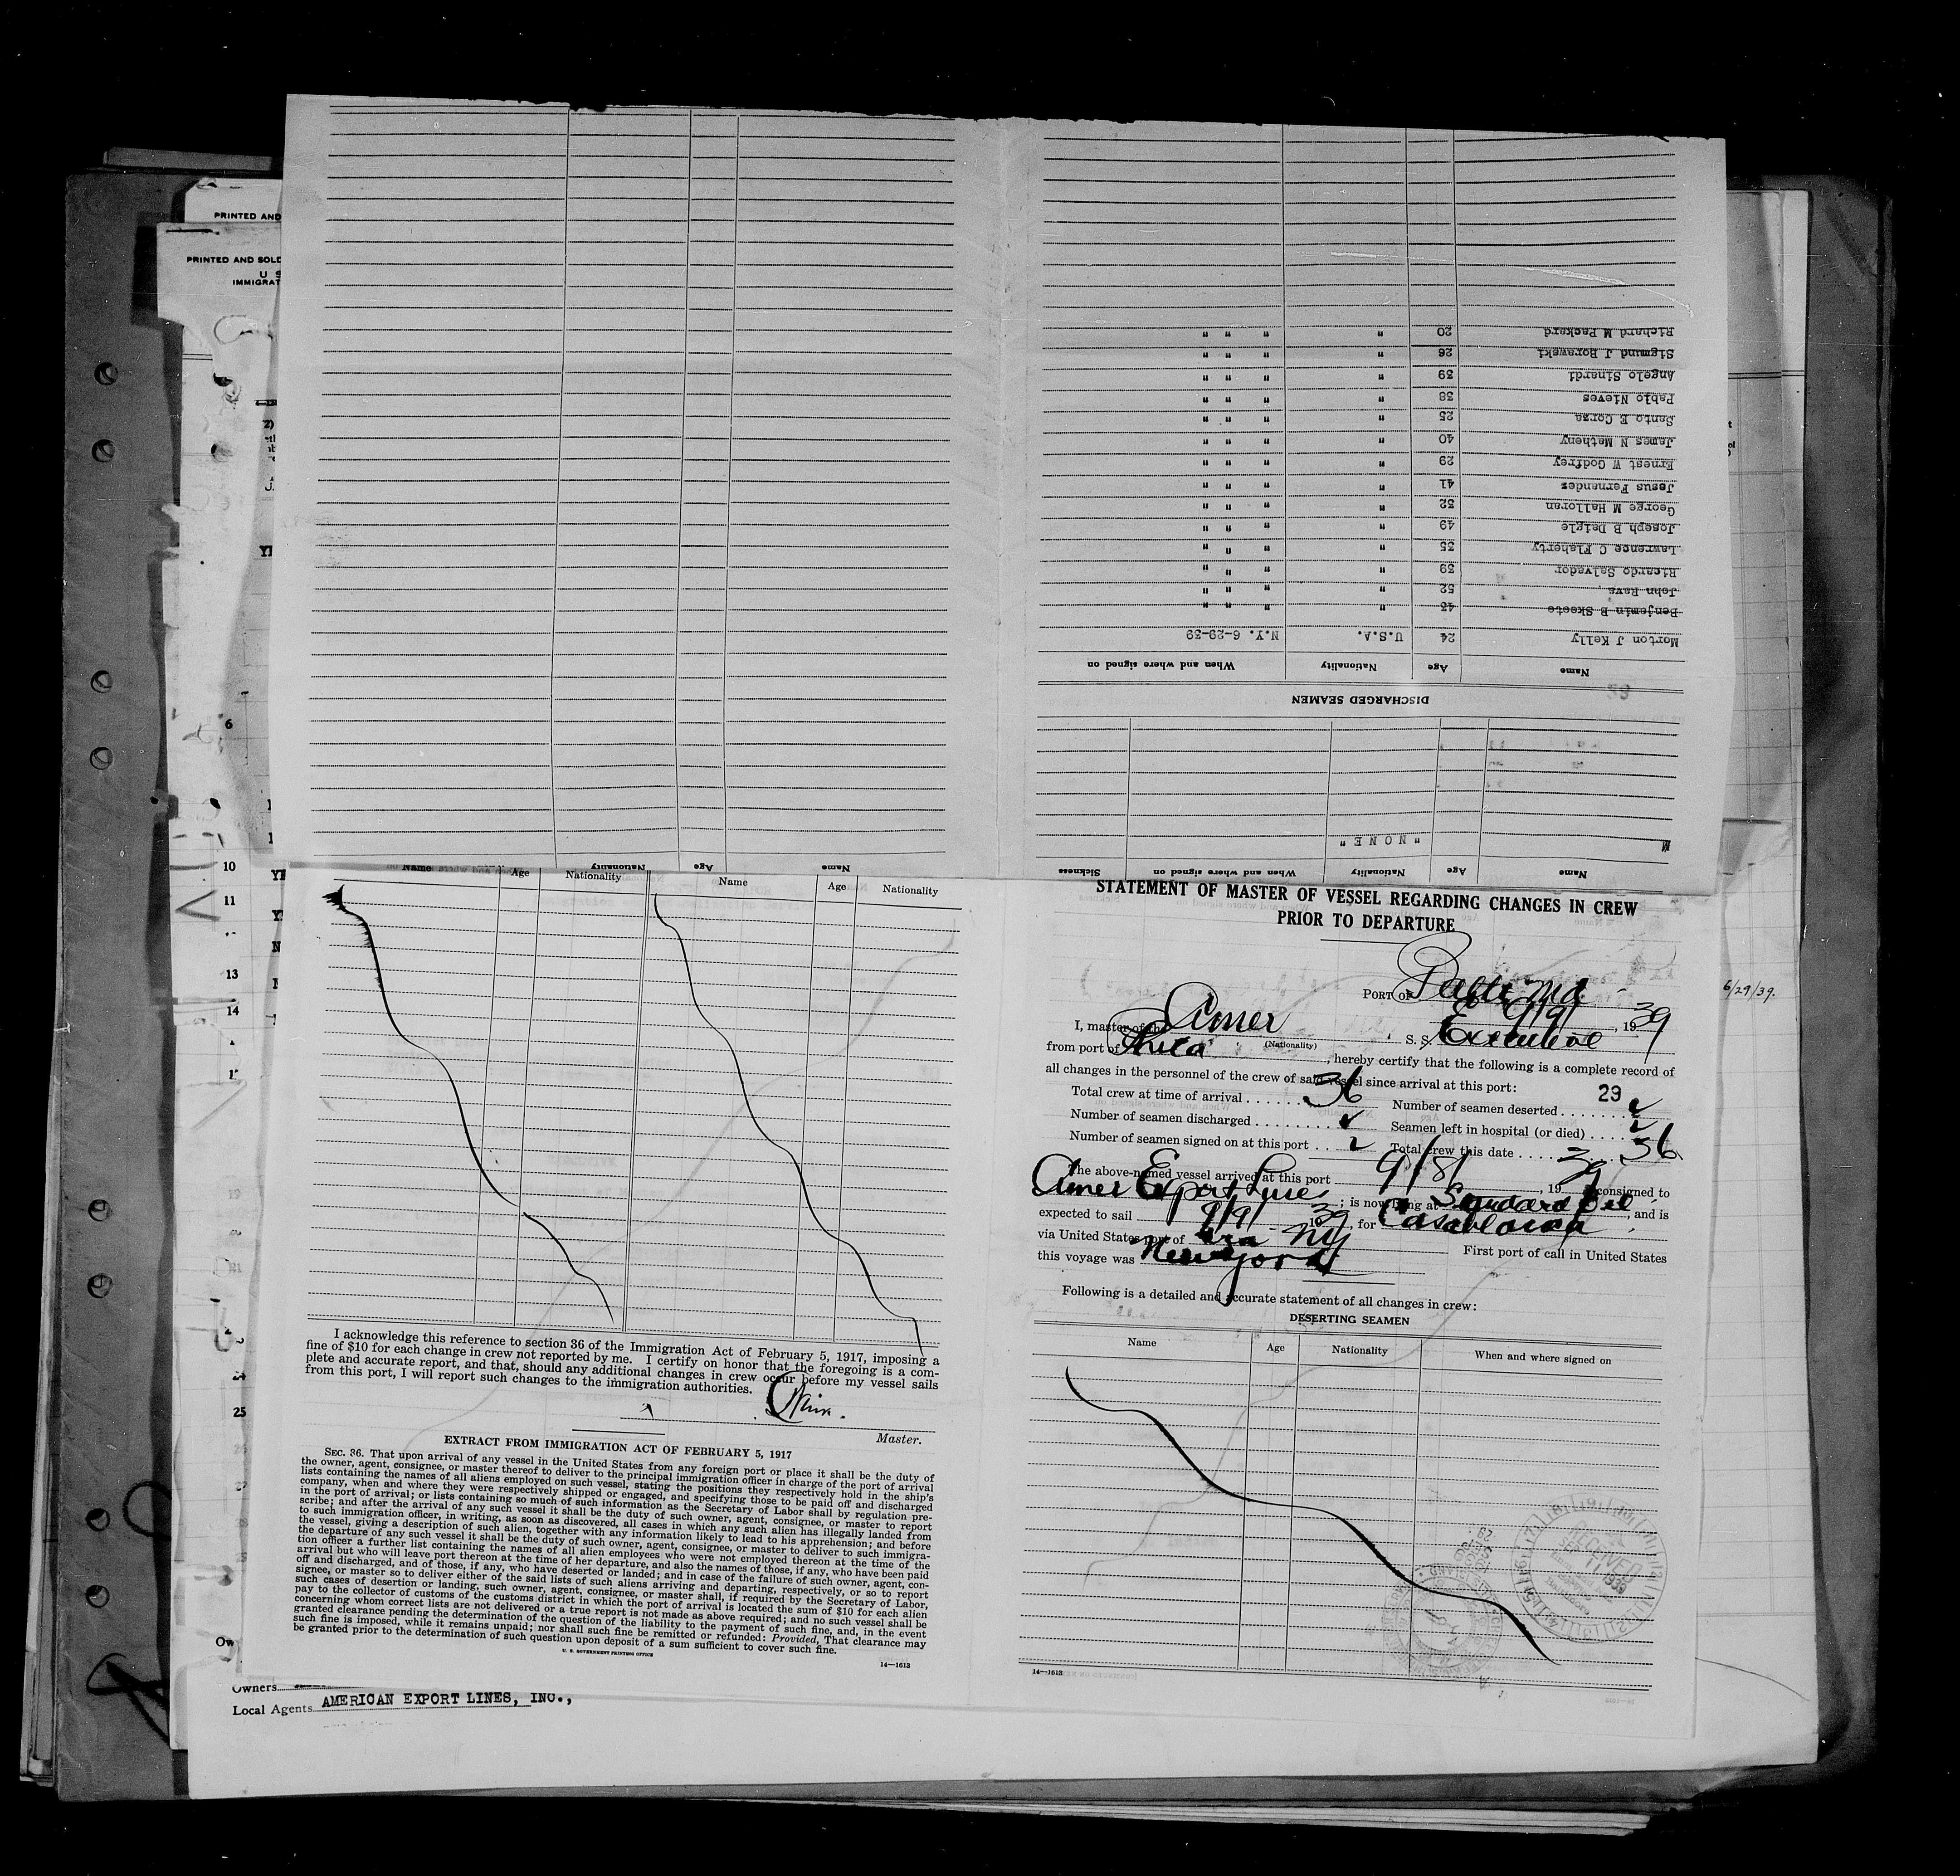 PRINTED AND
PRINTED AND SOLD
U S
IMMIGRAT
DISCHARGED SEAMEN
Name Age Nationality When and where signed on
Morton J Kelly 24 U.S.A. N.Y. 6-29-39
Benjamin B Skeete 43 " " " "
John Rava 52 " " " "
Ricardo Salvador 39 " " " "
Lawrence C Flaherty 35 " " " "
Joseph B Daigle 49 " " " "
George M Halloran 52 " " " "
Jesus Fernandez 41 " " " "
Ernest W Godfrey 29 " " " "
James N Matheny 40 " " " "
Santo E Corza 25 " " " "
Pablo Nieves 38 " " " "
Angelo Sinardi 39 " " " "
Sigmund J Borawski 26 " " " "
Richard M Packard 20 " " " "
Name Age Nationality When and where signed on Sickness
"NONE"
Name Age Nationality Name Age Nationality
I acknowledge this reference to section 36 of the Immigration Act of February 5, 1917, imposing a
fine of $10 for each change in crew not reported by me. I certify on honor that the foregoing is a com-
plete and accurate report, and that, should any additional changes in crew occur before my vessel sails
from this port, I will report such changes to the immigration authorities.
Master.
EXTRACT FROM IMMIGRATION ACT OF FEBRUARY 5, 1917
SEC. 36. That upon arrival of any vessel in the United States from any foreign port or place it shall be the duty of
the owner, agent, consignee, or master thereof to deliver to the principal immigration officer in charge of the port of arrival
lists containing the names of all aliens employed on such vessel, stating the positions they respectively hold in the ship's
company, when and where they were respectively shipped or engaged, and specifying those to be paid off and discharged
in the port of arrival; or lists containing so much of such information as the Secretary of Labor shall by regulation pre-
scribe; and after the arrival of any such vessel it shall be the duty of such owner, agent, consignee, or master to report
to such immigration officer, in writing, as soon as discovered, all cases in which any such alien has illegally landed from
the vessel, giving a description of such alien, together with any information likely to lead to his apprehension; and before
the departure of any such vessel it shall be the duty of such owner, agent, consignee, or master to deliver to such immigra-
tion officer a further list containing the names of all alien employees who were not employed thereon at the time of the
arrival but who will leave port thereon at the time of her departure, and also the names of those, if any, who have been paid
off and discharged, and of those, if any, who have deserted or landed; and in case of the failure of such owner, agent, con-
signee, or master so to deliver either of the said lists of such aliens arriving and departing, respectively, or so to report
such cases of desertion or landing, such owner, agent, consignee, or master shall, if required by the Secretary of Labor,
pay to the collector of customs of the customs district in which the port of arrival is located the sum of $10 for each alien
concerning whom correct lists are not delivered or a true report is not made as above required; and no such vessel shall be
granted clearance pending the determination of the question of the liability to the payment of such fine, and, in the event
such fine is imposed, while it remains unpaid; nor shall such fine be remitted or refunded: Provided, That clearance may
be granted prior to the determination of such question upon deposit of a sum sufficient to cover such fine.
U. S. GOVERNMENT PRINTING OFFICE
14—1613
STATEMENT OF MASTER OF VESSEL REGARDING CHANGES IN CREW
PRIOR TO DEPARTURE
PORT OF Balto Md.
9/9/, 1939
I, master of the Amer S. S. Executive
(Nationality)
from port of Phila, hereby certify that the following is a complete record of
all changes in the personnel of the crew of said vessel since arrival at this port:
29
Total crew at time of arrival 36 Number of seamen deserted
Number of seamen discharged Seamen left in hospital (or died)
Number of seamen signed on at this port Total crew this date 36
The above-named vessel arrived at this port 9/8/ 1939 consigned to
Amer Export Lines; is now lying at Standard Oil, and is
expected to sail 9/9/ 1939, for Casablanca
via United States port of NY First port of call in United States
this voyage was New York
Following is a detailed and accurate statement of all changes in crew:
DESERTING SEAMEN
Name Age Nationality When and where signed on
14—1613
6/29/39.
6
10
11
13
14
25
Owners
Local Agents AMERICAN EXPORT LINES, INC.,